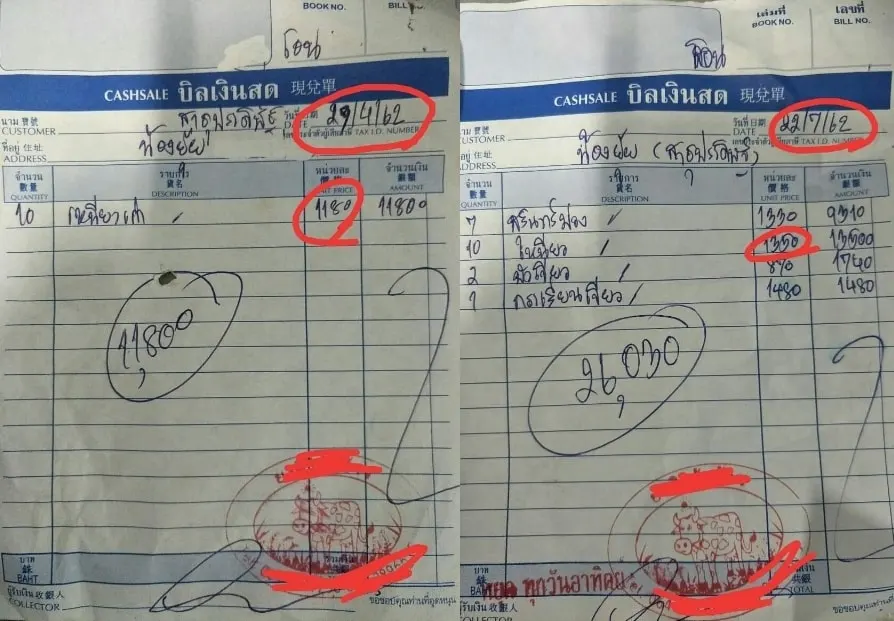 BOOK NO.
BILL
โอน
CASHSALE บิลเงินสด 現兌單
นาม 寶號
CUSTOMER
วันที่ 日期
DATE 29/4/62
TAX I.D. NUMBER
ที่อยู่ 住址
ADDRESS
น้องยุ้ย
จำนวน
數量
QUANTITY
รายการ
貨名
DESCRIPTION
หน่วยละ
價格
UNIT PRICE
จำนวนเงิน
銀額
AMOUNT
10 เหนียวเก่า 〃 1180 11800
11,800
บาท
銖
BAHT
รวมเงิน
共銀
ผู้รับเงิน 收銀人
COLLECTOR
ขอขอบคุณท่านที่อุดหนุน
เล่มที่
BOOK NO.
เลขที่
BILL NO.
โอน
CASHSALE บิลเงินสด 現兌單
นาม 寶號
CUSTOMER
วันที่ 日期
DATE 22/7/62
เลขประจำตัวผู้เสียภาษี TAX I.D. NUMBER
ที่อยู่ 住址
ADDRESS
น้องยุ้ย (สาธุประดิษฐ์)
จำนวน
數量
QUANTITY
รายการ
貨名
DESCRIPTION
หน่วยละ
價格
UNIT PRICE
จำนวนเงิน
銀額
AMOUNT
7 〃 1330 9310
10 เหนียว 〃 1350 13500
2 〃 870 1740
1 〃 1480 1480
26,030
บาท
銖
BAHT
หยุด ทุกวันอาทิตย์
รวมเงิน
共銀
TOTAL
ผู้รับเงิน 收銀人
COLLECTOR
ขอขอบคุณท่านที่อุดหนุน